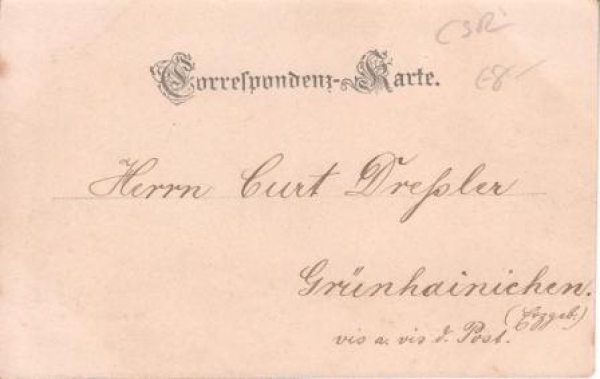 ČSR
€8-
Correspondenz-Karte.
Herrn Curt Dreßler
Grünhainichen.
(Erzgeb.)
vis a. vis d. Post.